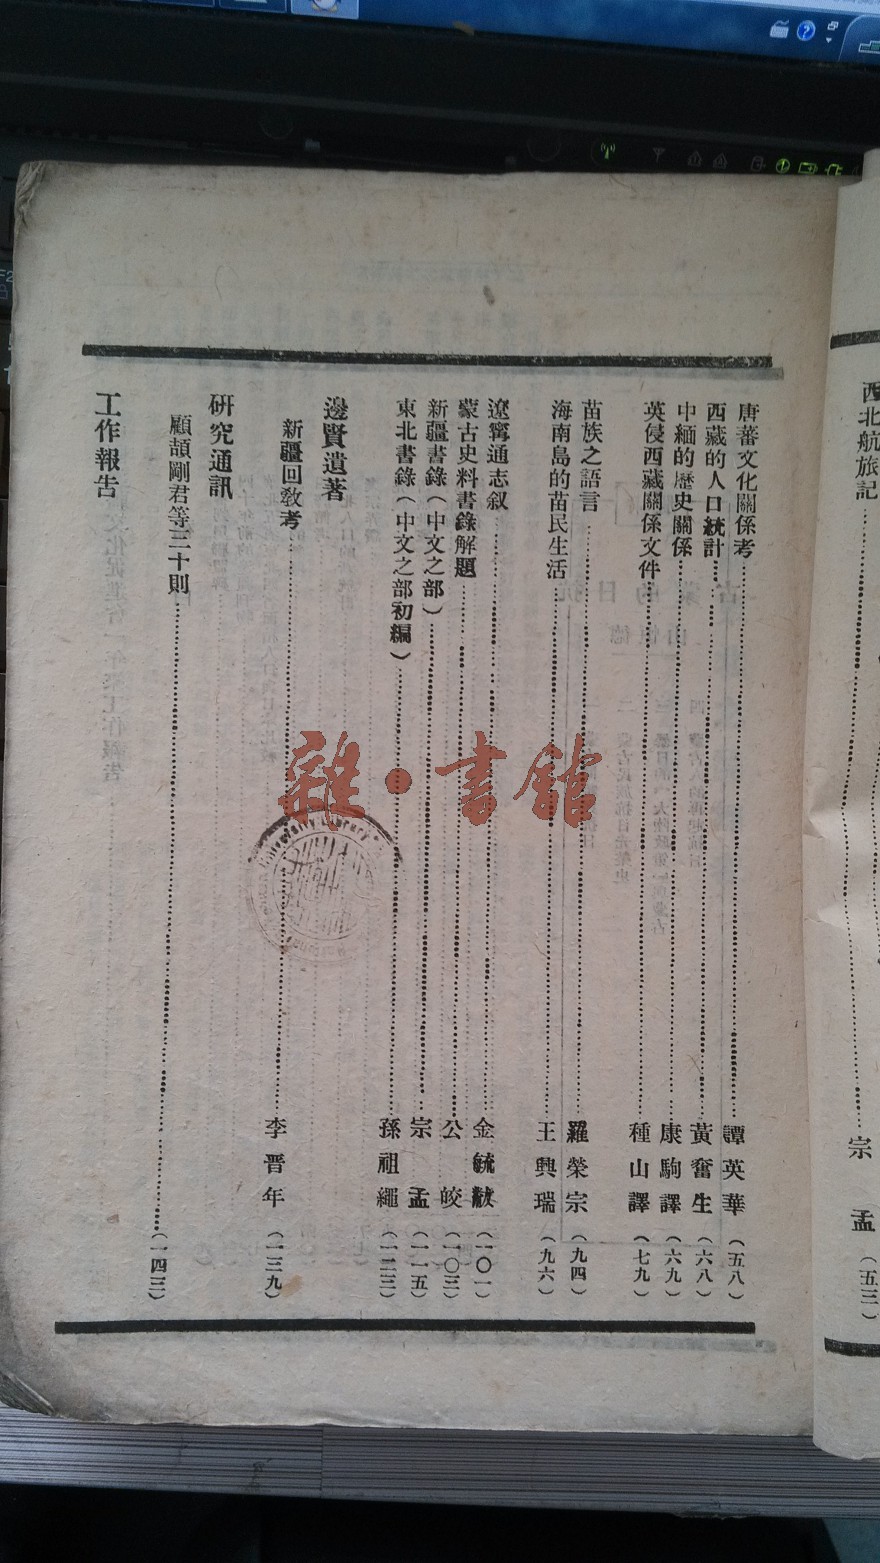 西北航旅記 宗孟 (五三)
唐蕃文化關係考 譚英華 (五八)
西藏的人口統計 黃奮生 (六八)
中緬的歷史關係 康駒譯 (六九)
英侵西藏關係文件 種山譯 (七九)
苗族之語言 羅榮宗 (九四)
海南島的苗民生活 王興瑞 (九六)
遼寗通志叙 金毓黻 (一〇一)
蒙古史料書錄解題 公皎 (一〇三)
新疆書錄(中文之部) 宗孟 (一一五)
東北書錄(中文之部初編) 孫祖繩 (一二三)
邊賢遺著
新疆回敎考 李晋年 (一三九)
研究通訊
顧頡剛君等三十則 (一四三)
工作報告
雜·書館
University Library